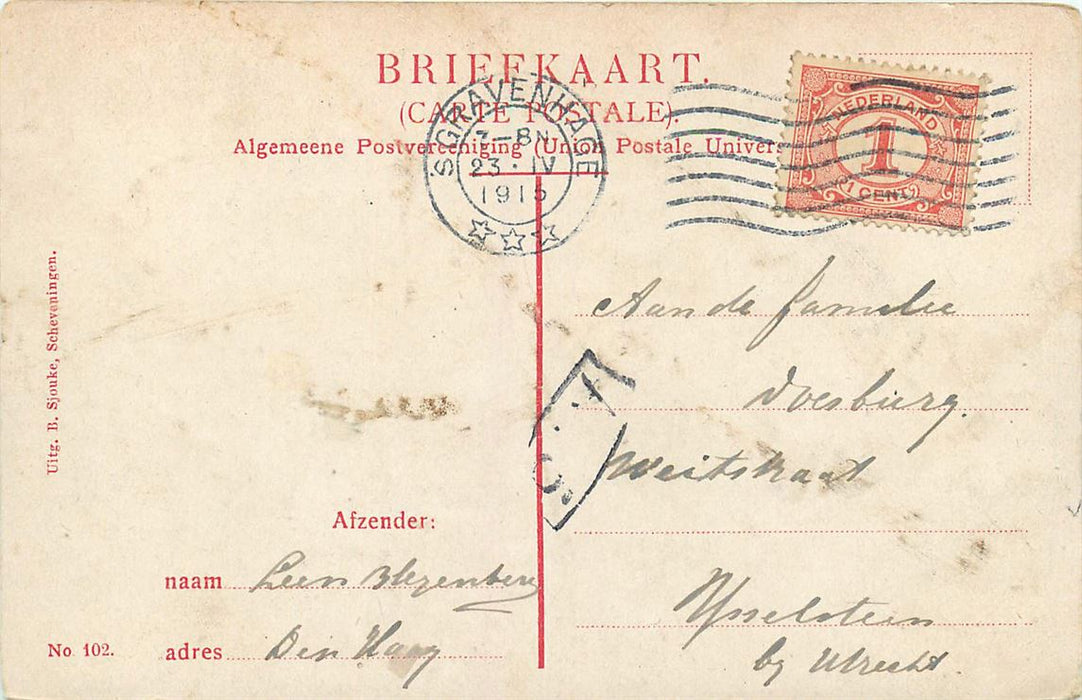 BRIEFKAART.
(CARTE POSTALE).
Algemeene Postvereeniging (Union Postale Univers
'S GRAVENHAGE
7-8N
23.IV
1915
NEDERLAND
1
1 CENT
Aan de familie
Doesburg.
Weitstraat
Ysselstein
by Utrecht.
Afzender:
naam Leen
adres Den Haag
No. 102.
Uitg. B. Sjouke, Scheveningen.